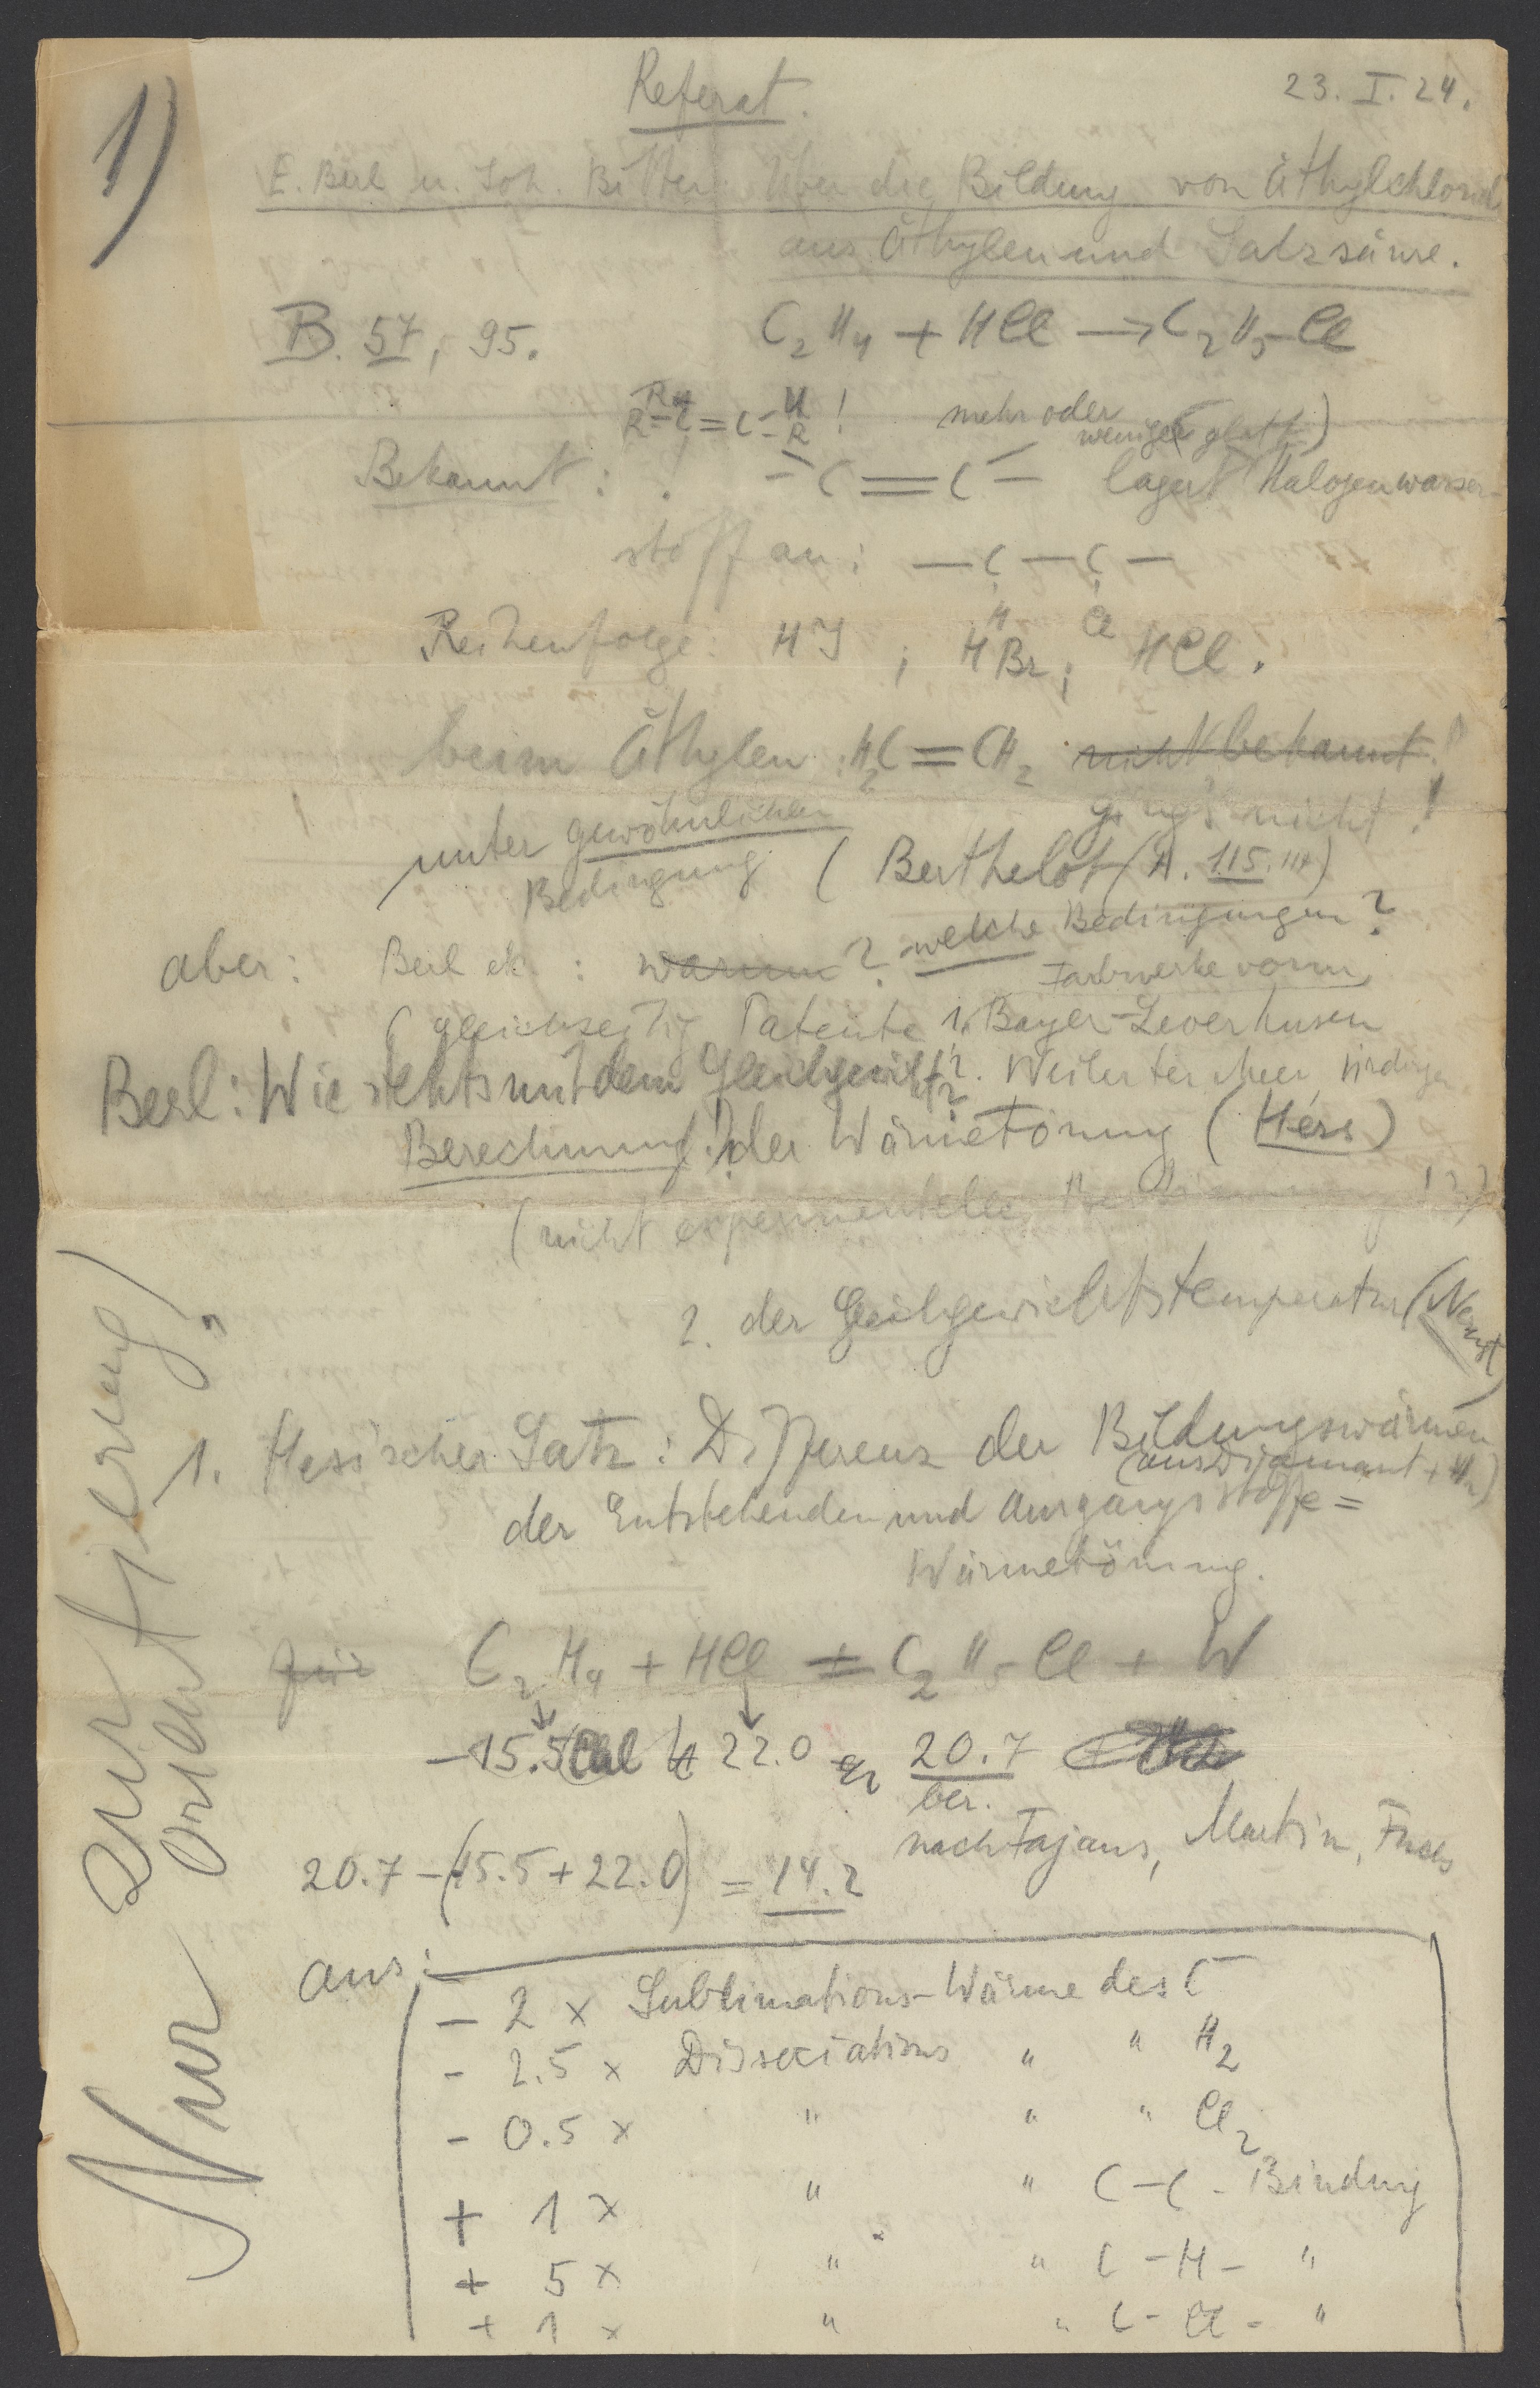 1)
Referat.
23. I. 24.
E. Berl u. Joh. Bitter: Über die Bildung von Äthylchlorid
aus Äthylen und Salzsäure.
B. 57, 95.
C2H4 + HCl → C2H5Cl
mehr oder
weniger glatt)
Bekannt: C = C lagert Halogenwasser-
stoff an: — C — C —
H Cl
Reihenfolge: HJ ; HBr ; HCl.
beim Äthylen H2C = CH2 nicht bekannt!
ging's nicht!
unter gewöhnlichen
Bedingung (Berthelot (A. 115. 114)
aber: Berl etc : warum? welche Bedingungen?
Farbwerke vorm.
(gleichzeitig Patente 1. Bayer-Leverkusen
2. Weiler ter Meer
Berl: Wie stehts mit dem Gleichgewicht?
Berechnung! 1. der Wärmetönung (Hess)
(nicht experimentelle
2. der Gleichgewichtstemperatur (Nernst)
1. Hessischer Satz: Differenz der Bildungswärmen
(aus Diamant + H2)
der Entstehenden und Ausgangsstoffe =
Wärmetönung.
für C2H4 + HCl = C2H5Cl + W
-15.5 Cal + 22.0 20.7
ber.
nach Fajans, Martin, Fuchs
20.7 - (-15.5 + 22.0) = 14.2
aus:
- 2 x Sublimations-Wärme des C
- 2.5 x Dissociations " " H2
- 0.5 x " " " Cl2
+ 1 x " " C-C-Bindung
+ 5 x " " C-H- "
+ 1 x " " C-Cl- "
Nur zur
Orientierung!